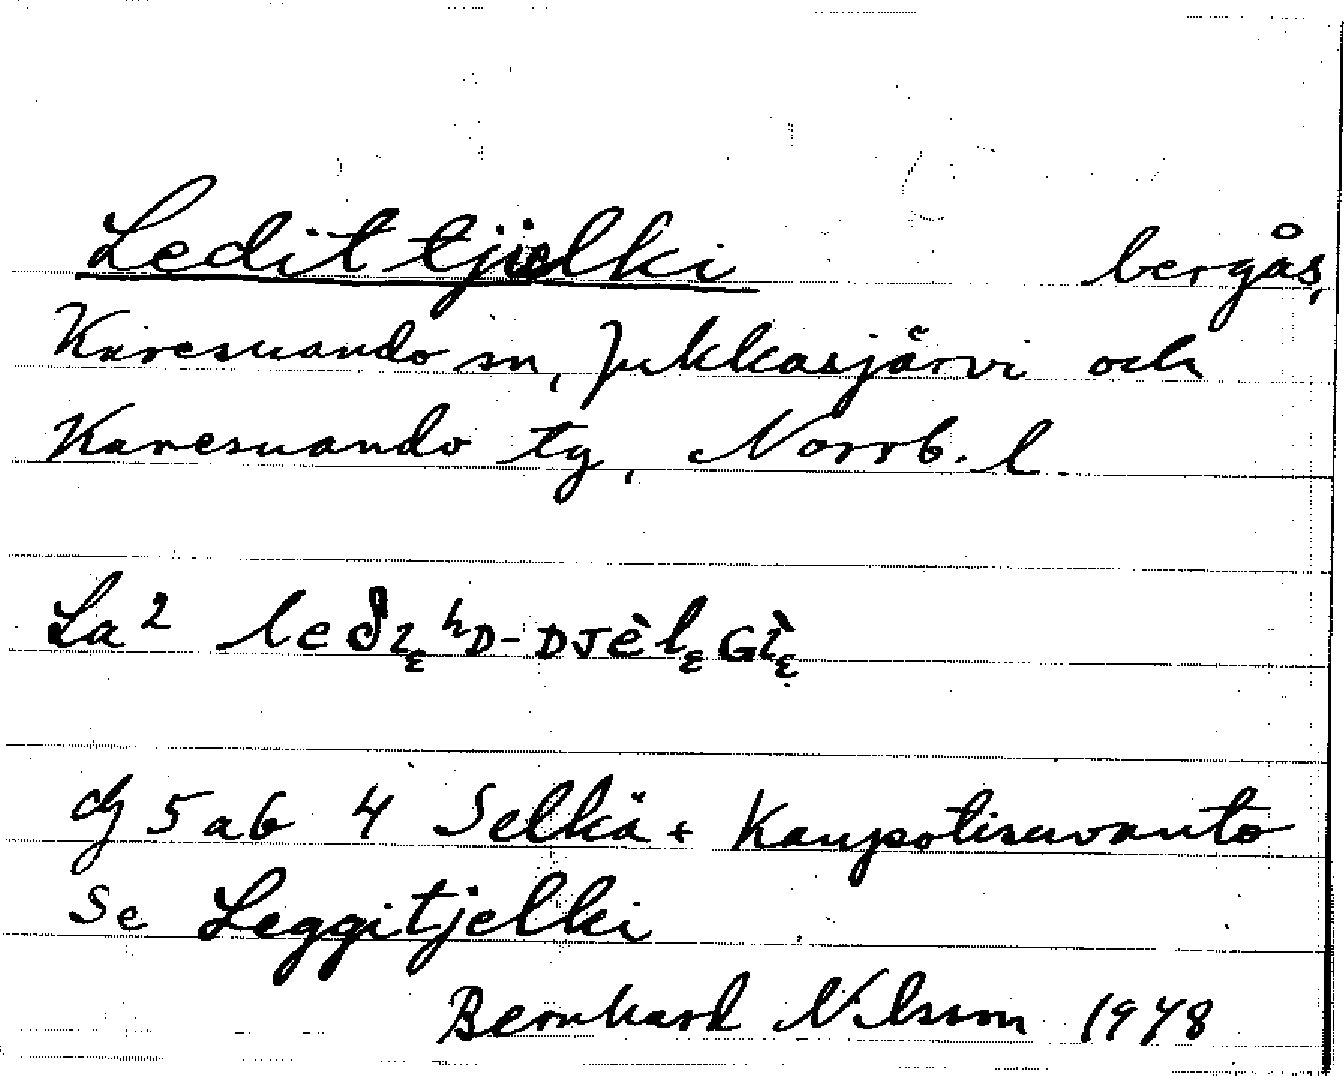 Ledittjielki bergås,
Karesuando sn, Jukkasjärvi och
Karesuando tg, Norrb. l.
La² leδɪ̨ʰD-DJèl̨Gį̀
dg 5 a b 4 Selkä + Kaupotisuvanto
Se Leggitjelki
Bernhard Nilsson 1948